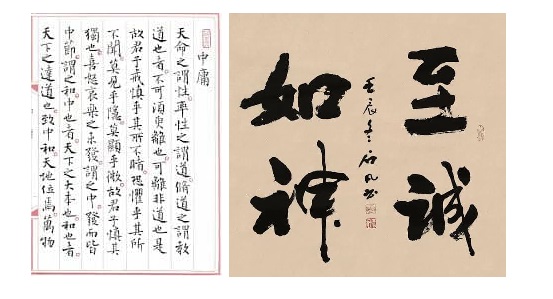 中庸
天命之謂性率性之謂道脩道之謂教
道也者不可須臾離也可離非道也是
故君子戒慎乎其所不睹恐懼乎其所
不聞莫見乎隱莫顯乎微故君子慎其
獨也喜怒哀樂之未發謂之中發而皆
中節謂之和中也者天下之大本也和也者
天下之達道也致中和天地位焉萬物
至誠
如神
壬辰冬